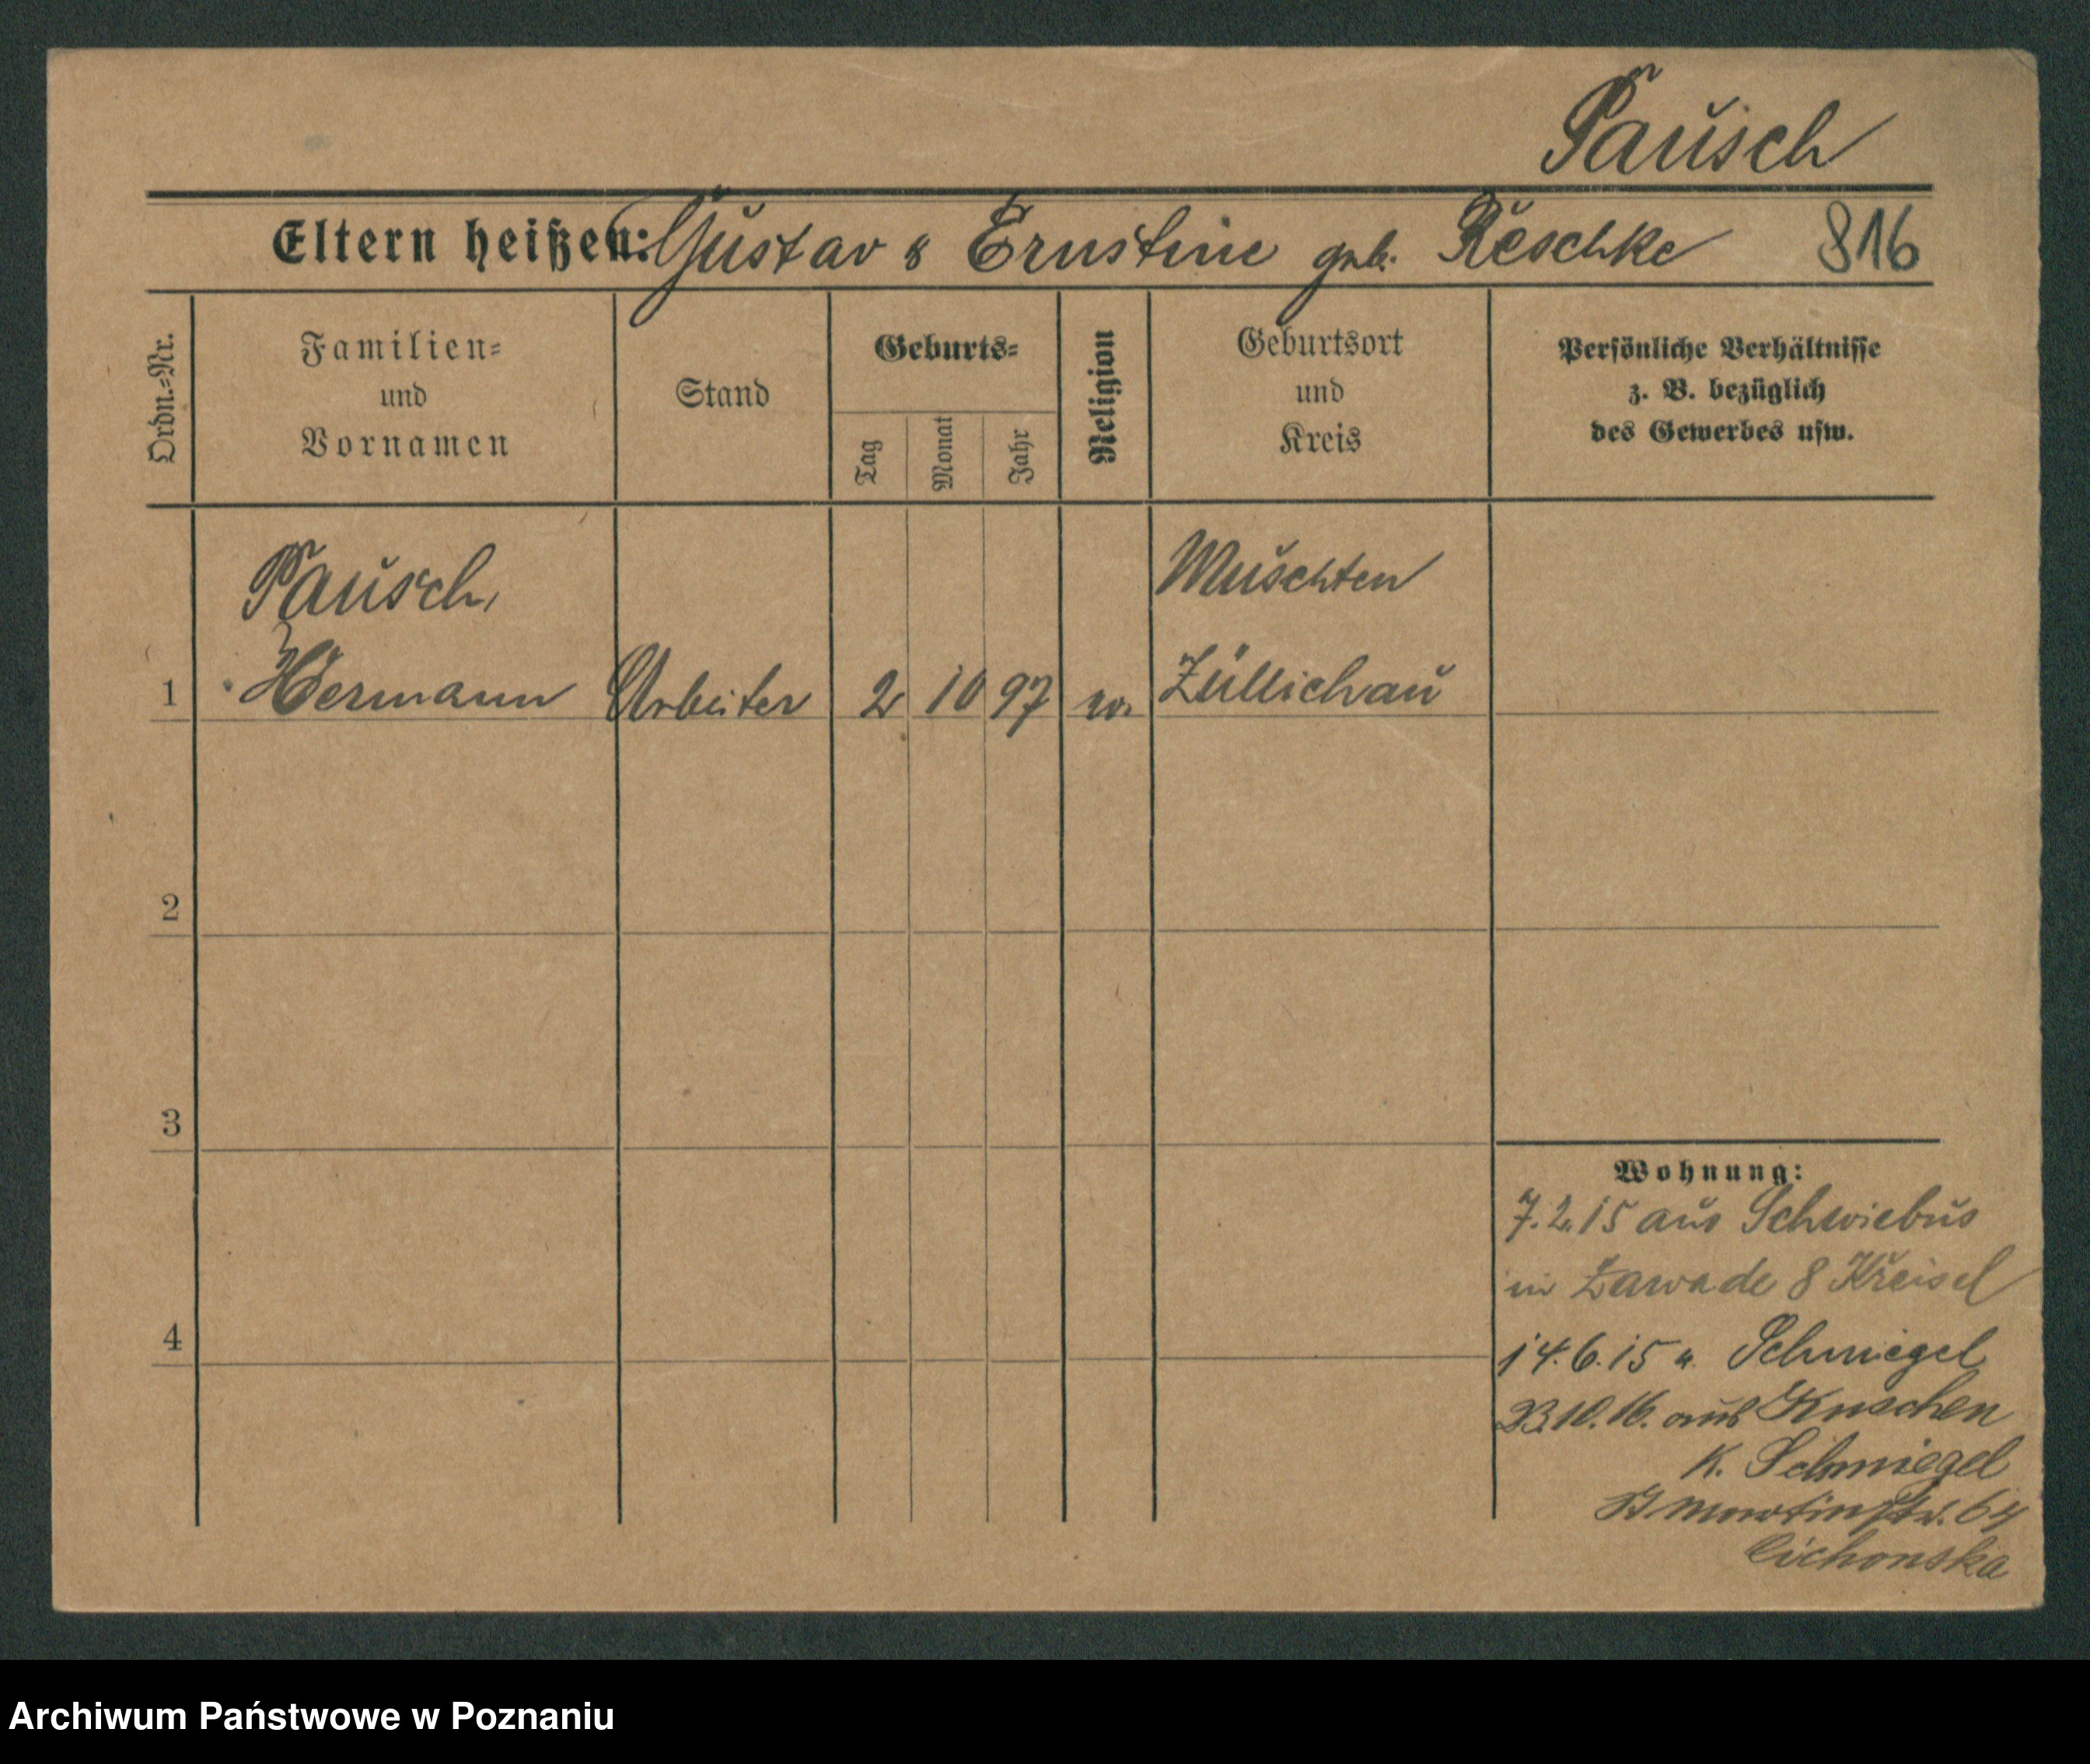 Pausch
Eltern heißen: Gustav & Ernstine geb. Reschke 816
Ordn.-Nr.
Familien-
und
Vornamen
Stand
Geburts-
Tag
Monat
Jahr
Religion
Geburtsort
und
Kreis
Persönliche Verhältnisse
z. B. bezüglich
des Gewerbes usw.
Pausch, Muschten
1 Hermann Arbeiter 2 10 97 ev. Züllichau
2
3
4
Wohnung:
7.2.15 aus Schwiebus
in Zawade 8 Kreisel
14.6.15 n. Schmiegel
23.10.16. aus Kuschen
K. Schmiegel
St Martinstr. 64
Cichonska
Archiwum Państwowe w Poznaniu